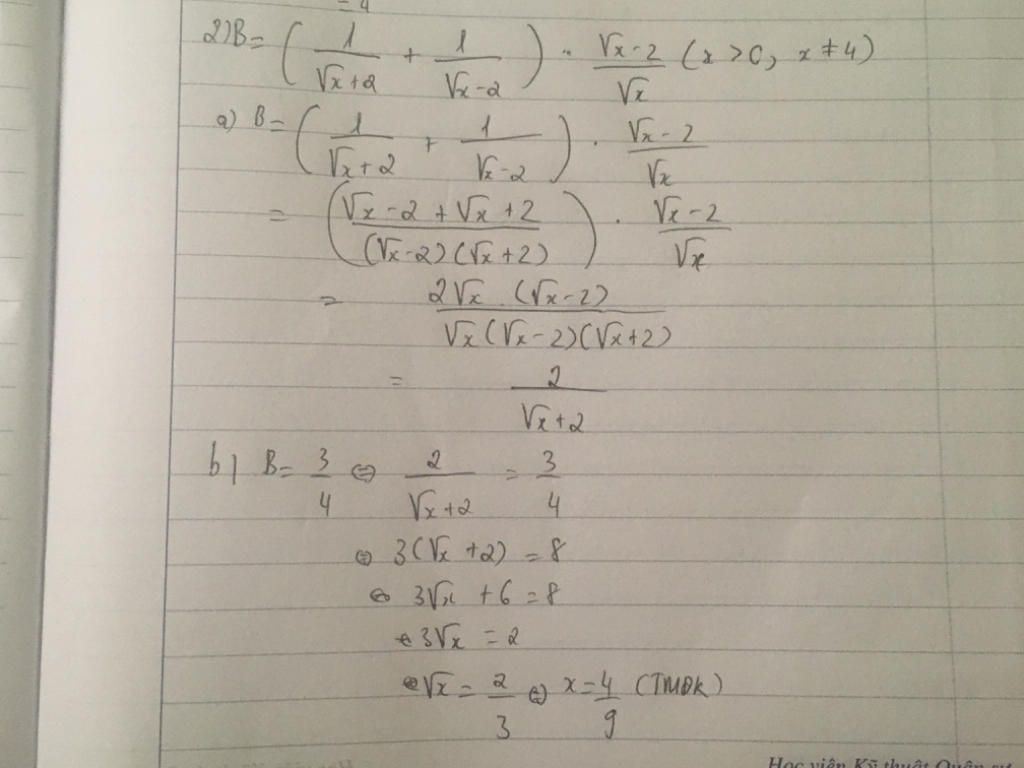 = 4
2) B = ( 1/(√x+2) + 1/(√x-2) ) · (√x-2)/√x (x > 0, x ≠ 4)
a) B = ( 1/(√x+2) + 1/(√x-2) ) · (√x-2)/√x
= ( (√x-2+√x+2)/((√x-2)(√x+2)) ) · (√x-2)/√x
= (2√x.(√x-2))/(√x(√x-2)(√x+2))
= 2/(√x+2)
b) B = 3/4 ⇔ 2/(√x+2) = 3/4
⇔ 3(√x+2) = 8
⇔ 3√x + 6 = 8
⇔ 3√x = 2
⇔ √x = 2/3 ⇔ x = 4/9 (TMĐK)
Học viện Kỹ thuật Quân sự